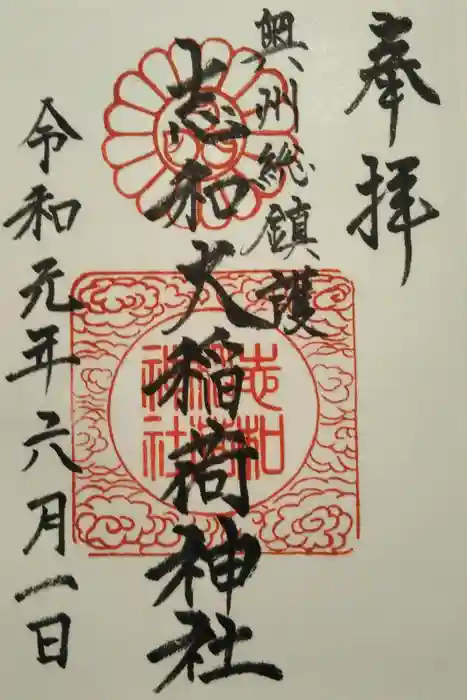 奉拝
奥州総鎮護
志和大稲荷神社
志和
稲荷
神社
令和元年六月一日